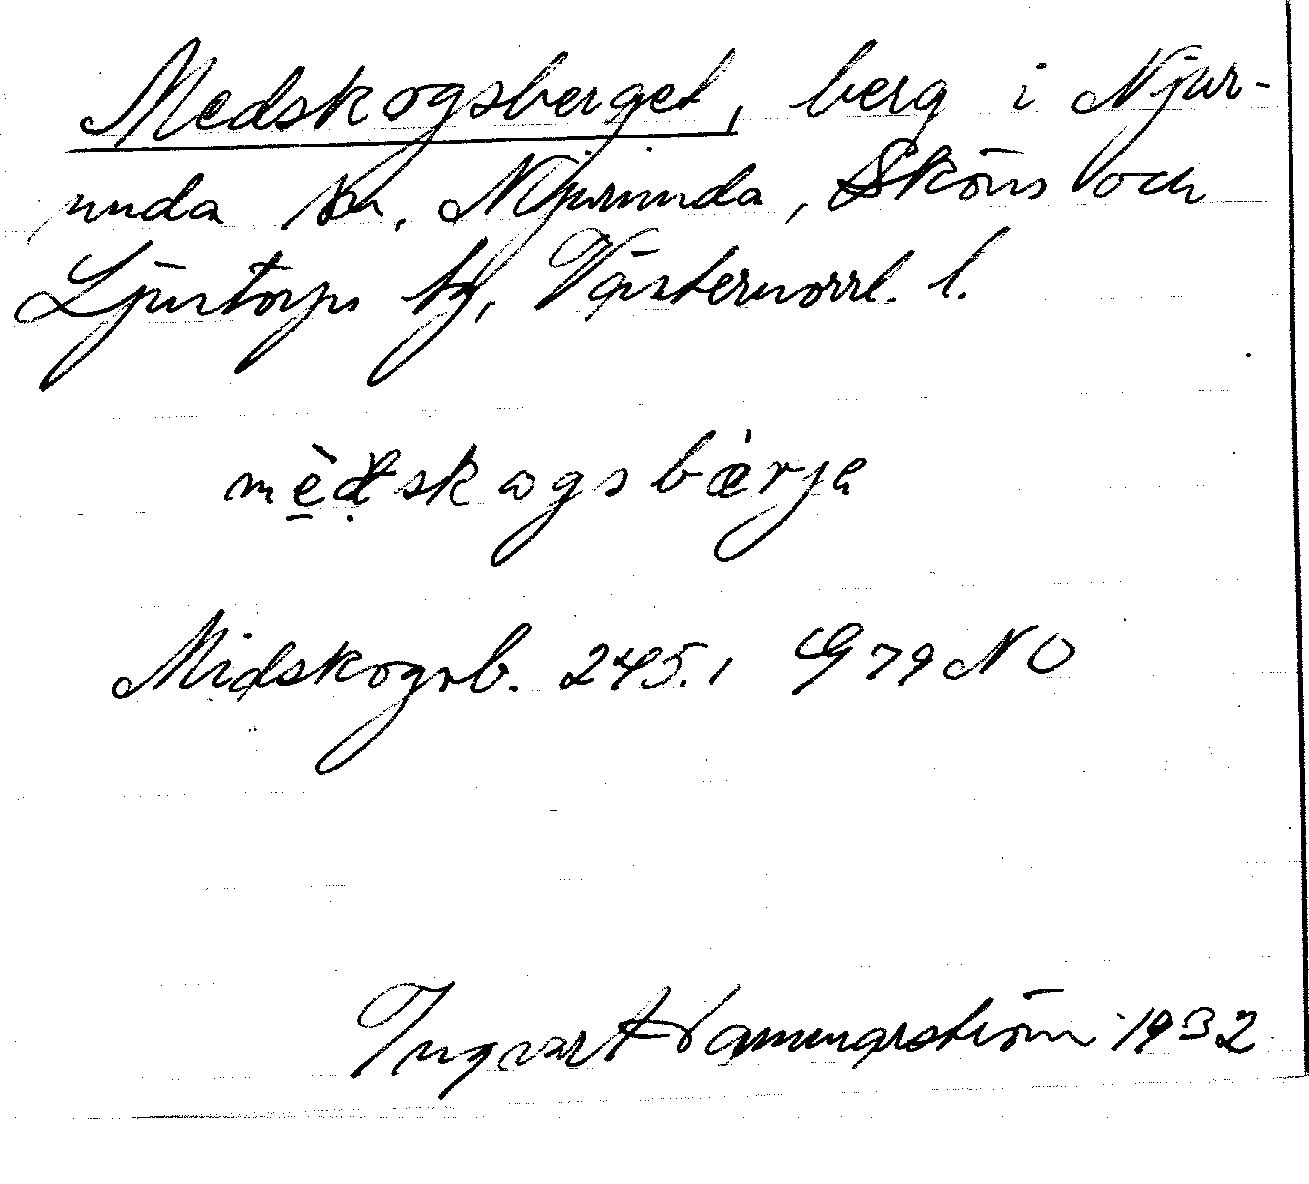 Medskogsberget, berg i Njur-
unda sn, Njurunda, Sköns och
Ljustorps tg, Västernorrl. l.
mèdskogsbæ̀rja
Midskogsb. 245.1 G79 NO
Ingvart 1932